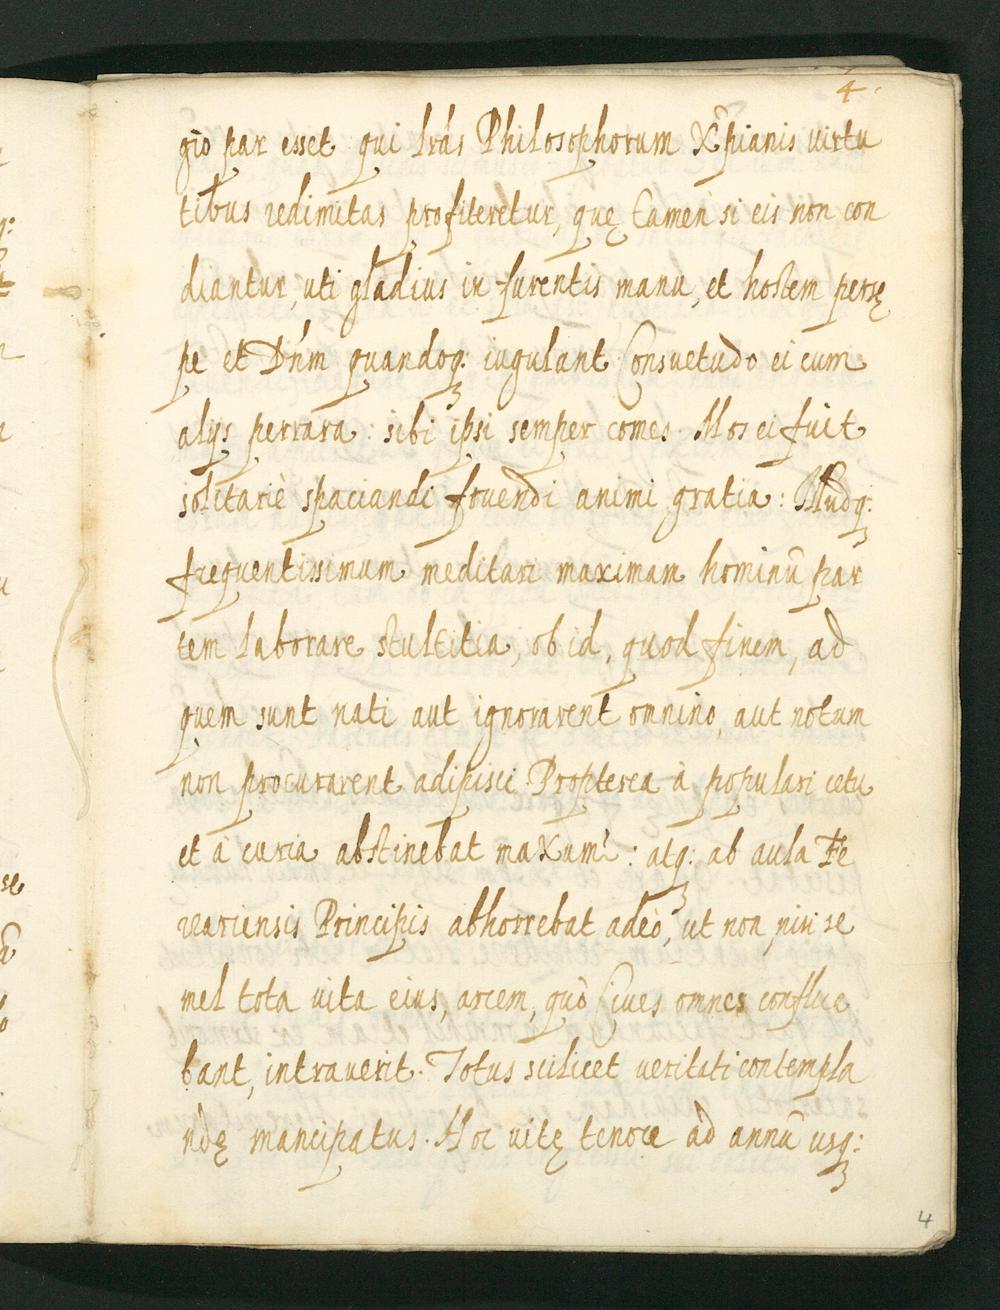 4.
giò par esset qui lr̃as Philosophorum X̃pianis virtu
tibus redimitas profiteretur, quę tamen si eis non con
diantur, uti gladius in furentis manu, et hostem persę
pe et Dñm quandoq: iugulant. Consuetudo ei cum
alijs perrara: sibi ipsi semper comes. Mos ei fuit
solitariè spaciandi fruendi animi gratia: Illudq:
frequentissimum meditari maximam hominũ par
tem laborare stultitia, ob id, quod finem, ad
quem sunt nati aut ignorarent omnino, aut notum
non procurarent adipisci. Propterea à populari cetu
et à curia abstinebat maxumè: atq: ab aula Fe
rrariensis Principis abhorrebat adeò, ut non nisi se
mel tota vita eius, arcem, quò Ciues omnes conflue
bant, intrauerit. Totus scilicet veritati contempla
ndę mancipatus. Hoc uitę tenore ad annũ usq:
4